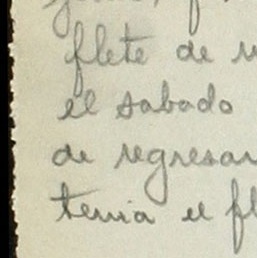 flete de
el sabado
de regresar
tenia el fl